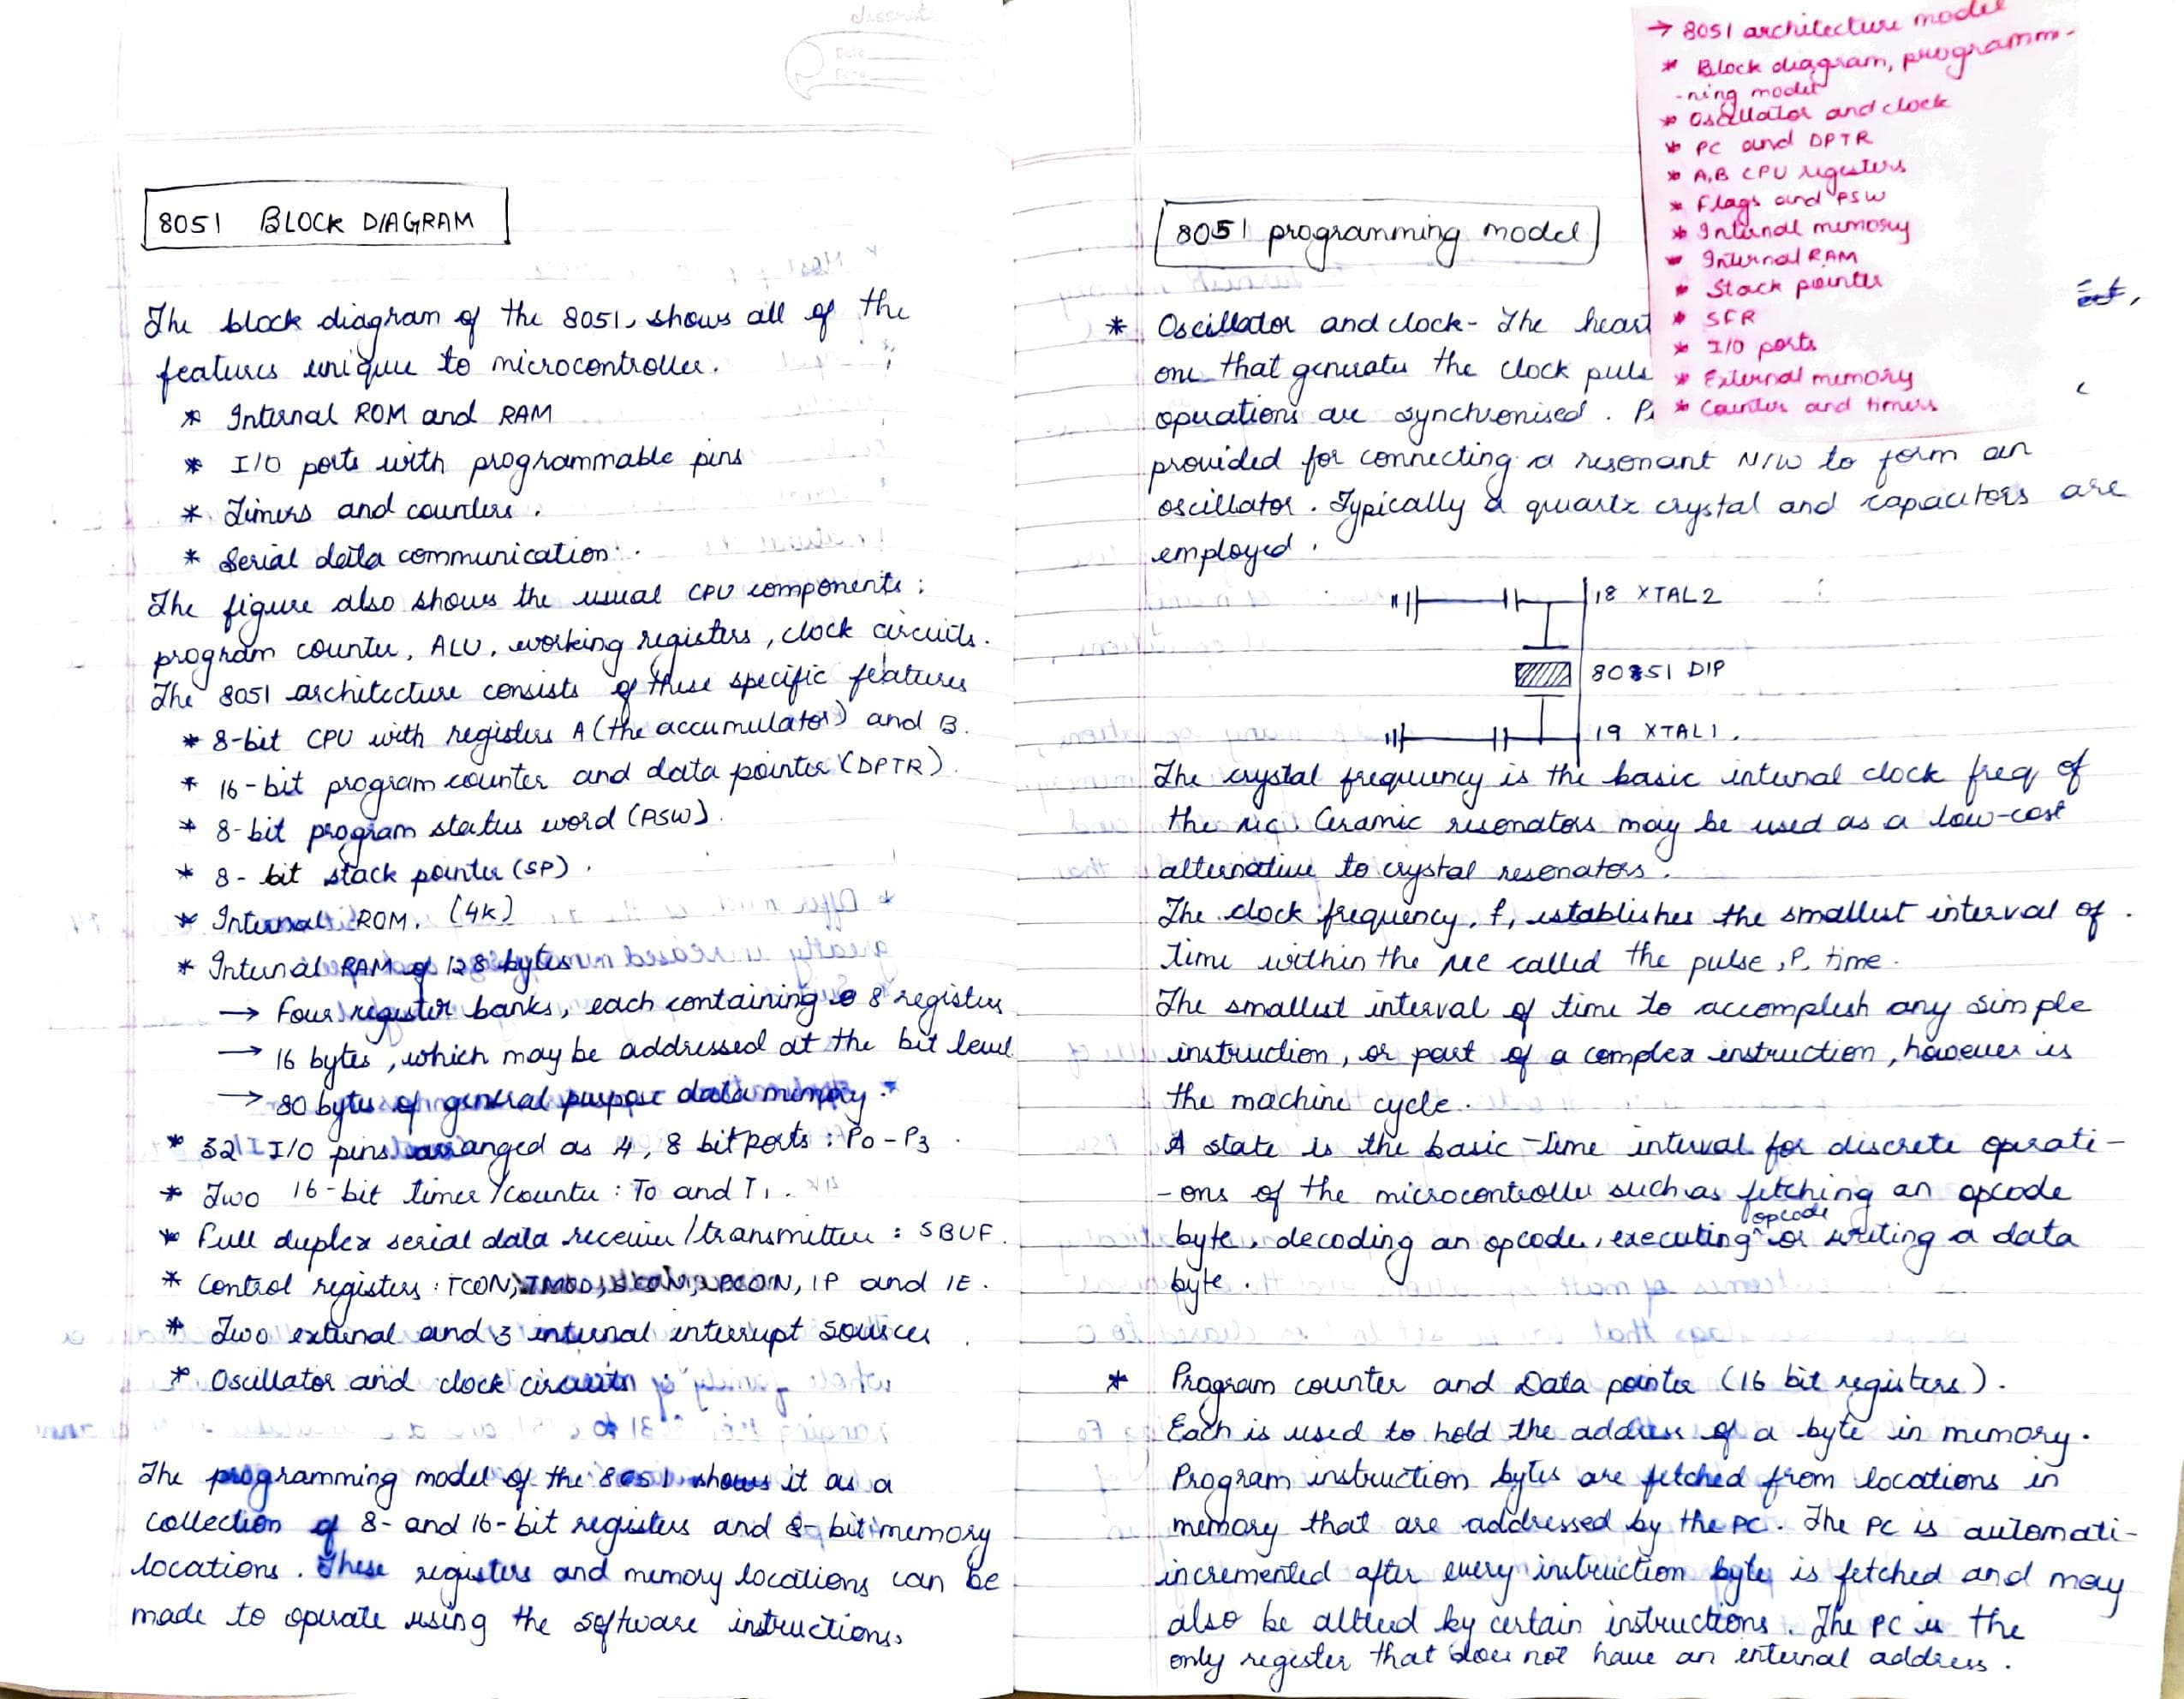 classmate
Date
Page
8051 BLOCK DIAGRAM
The block diagram of the 8051, shows all of the
features unique to microcontroller.
* Internal ROM and RAM
* I/O ports with programmable pins
* Timers and counters.
* Serial data communication.
The figure also shows the usual CPU components:
program counter, ALU, working registers, clock circuits.
The 8051 architecture consists of these specific features
* 8-bit CPU with registers A (the accumulator) and B.
* 16-bit program counter and data pointer (DPTR).
* 8-bit program status word (PSW).
* 8-bit stack pointer (SP).
* Internal ROM. (4K)
* Internal RAM of 128 bytes
→ Four register banks, each containing 8 registers
→ 16 bytes, which may be addressed at the bit level
→ 80 bytes of general purpose data memory.
* 32 I/O pins arranged as 4, 8 bit ports: P0 - P3.
* Two 16-bit timer/counter: T0 and T1.
* Full duplex serial data receiver/transmitter: SBUF.
* Control registers: TCON, TMOD, SCON, PCON, IP and IE.
* Two external and 3 internal interrupt sources.
* Oscillator and clock circuits.
The programming model of the 8051 shows it as a
collection of 8- and 16-bit registers and 8-bit memory
locations. These registers and memory locations can be
made to operate using the software instructions.
→ 8051 architecture model
* Block diagram, programm-
-ning model
* Oscillator and clock
* PC and DPTR
* A,B CPU registers
* Flags and PSW
* Internal memory
* Internal RAM
* Stack pointer
* SFR
* I/O ports
* External memory
* Counter and timers
8051 programming model
* Oscillator and clock- The heart
one that generates the clock puls
operations are synchronised. P
provided for connecting a resonant N/W to form an
oscillator. Typically a quartz crystal and capacitors are
employed.
18 XTAL2
8051 DIP
19 XTAL1.
The crystal frequency is the basic internal clock freq of
the μc. Ceramic resonators may be used as a low-cost
alternative to crystal resonators.
The clock frequency, f, establishes the smallest interval of
time within the μc called the pulse, P, time.
The smallest interval of time to accomplish any simple
instruction, or part of a complex instruction, however is
the machine cycle.
A state is the basic time interval for discrete operati-
-ons of the microcontroller such as fetching an opcode
byte, decoding an opcode, executing opcode or writing a data
byte.
* Program counter and Data pointer (16 bit registers).
Each is used to hold the address of a byte in memory.
Program instruction bytes are fetched from locations in
memory that are addressed by the PC. The PC is automati-
incremented after every instruction byte is fetched and may
also be altered by certain instructions. The PC is the
only register that does not have an internal address.